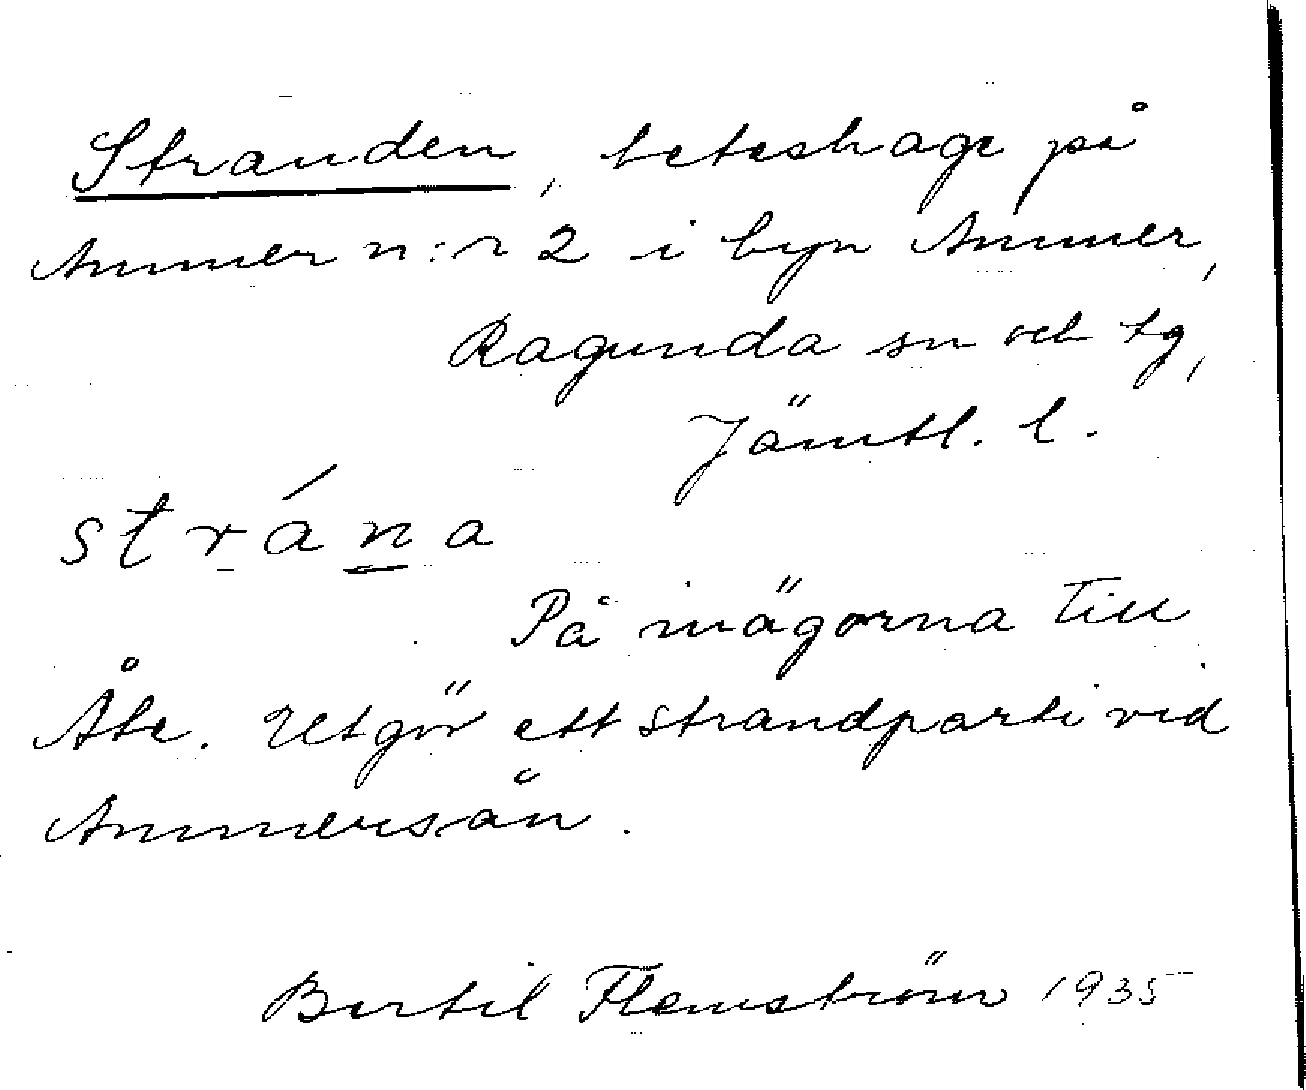 Stranden, beteshage på
Ammer n:r 2 i byn Ammer,
Ragunda sn och tg,
Jämtl. l.
strána
På inägorna till
Åbe. Utgör ett strandparti vid
Ammersån.
Bertil Flemström 1935